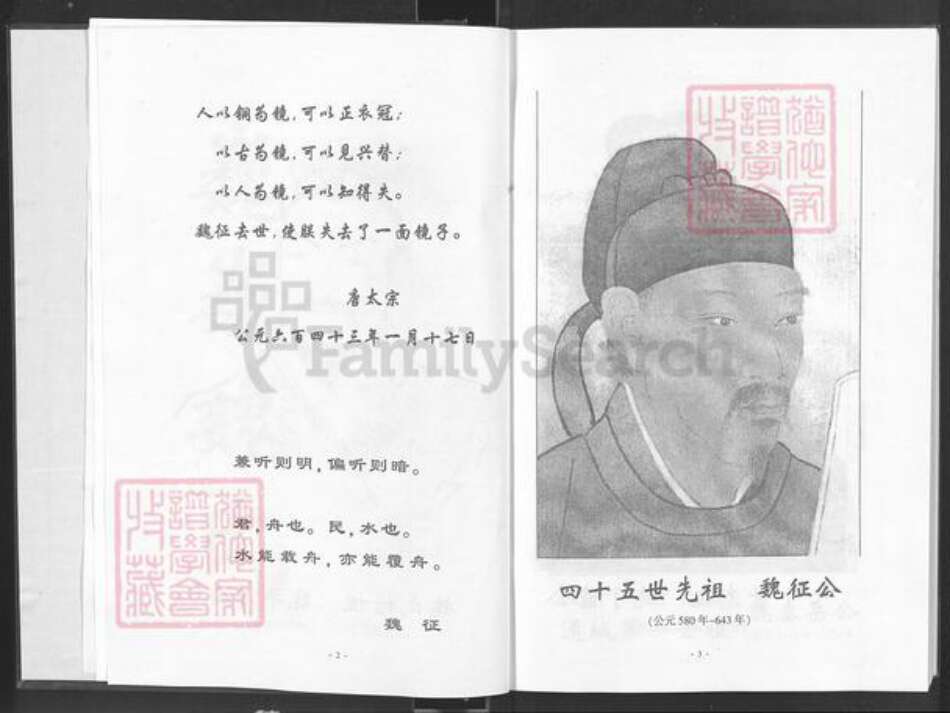 人以铜为镜,可以正衣冠;
以古为镜,可以见兴替;
以人为镜,可以知得失。
魏征去世,使朕失去了一面镜子。
唐太宗
公元六百四十三年一月十七日
兼听则明,偏听则暗。
君,舟也。民,水也。
水能载舟,亦能覆舟。
魏 征
-2-
四十五世先祖 魏征公
(公元580年-643年)
-3-
FamilySearch
譜學會
收藏
譜學會
收藏